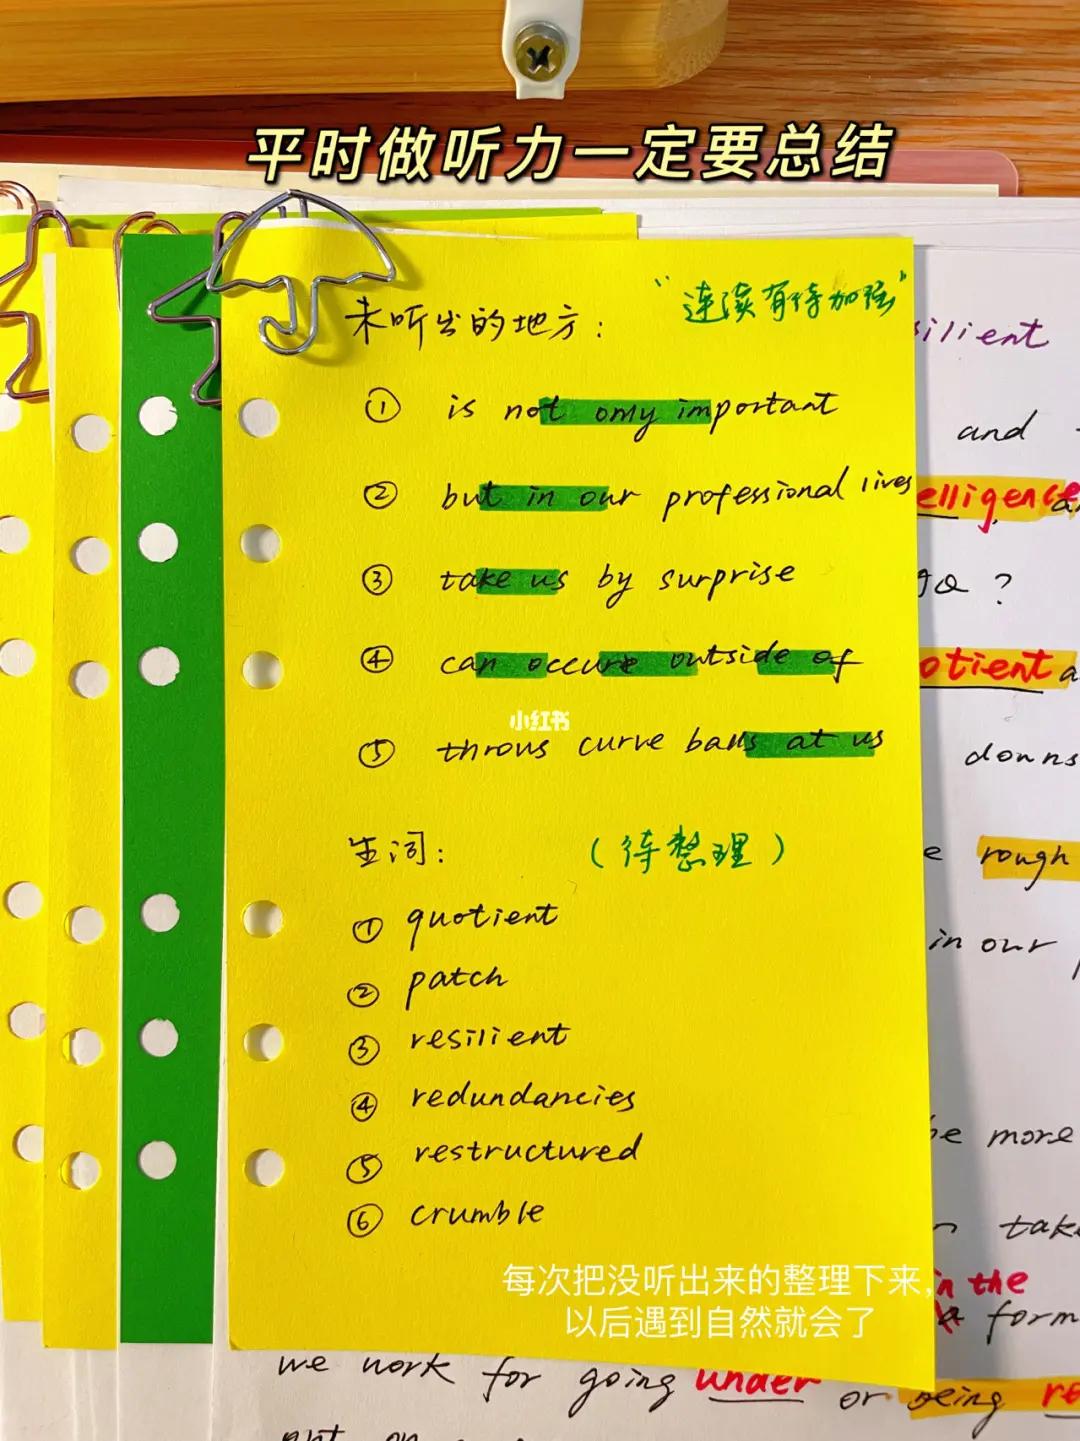 平时做听力一定要总结
未听出的地方：
"连续有待加强"
silient
① is not only important
and
② but in our professional lives
elligence, a
③ take us by surprise
go ?
④ can occure outside of
otient a
小红书
⑤ throws curve balls at us
downs
生词：
（待整理）
e rough
① quotient
in our
② patch
③ resilient
④ redundancies
be more
⑤ restructured
⑥ crumble
take
每次把没听出来的整理下来，
in the
以后遇到自然就会了
a form
we work for going under or being re